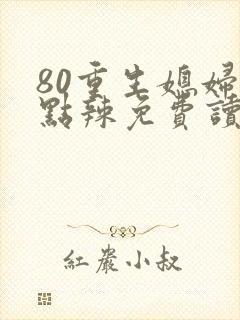 80重生媳婦
點辣免費讀
紅岩小叔